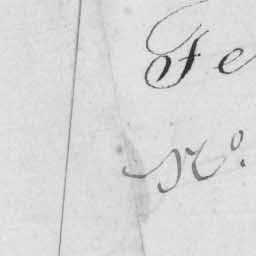 Fe
No.